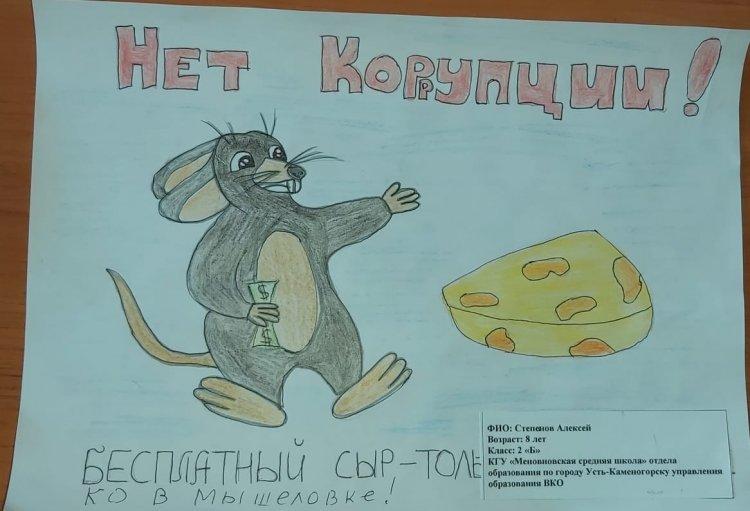 НЕТ КОРРУПЦИИ!
$
$
БЕСПЛАТНЫЙ СЫР-ТОЛЬ
КО В МЫШЕЛОВКЕ!
ФИО: Степенов Алексей
Возраст: 8 лет
Класс: 2 «Б»
КГУ «Меновновская средняя школа» отдела
образования по городу Усть-Каменогорску управления
образования ВКО